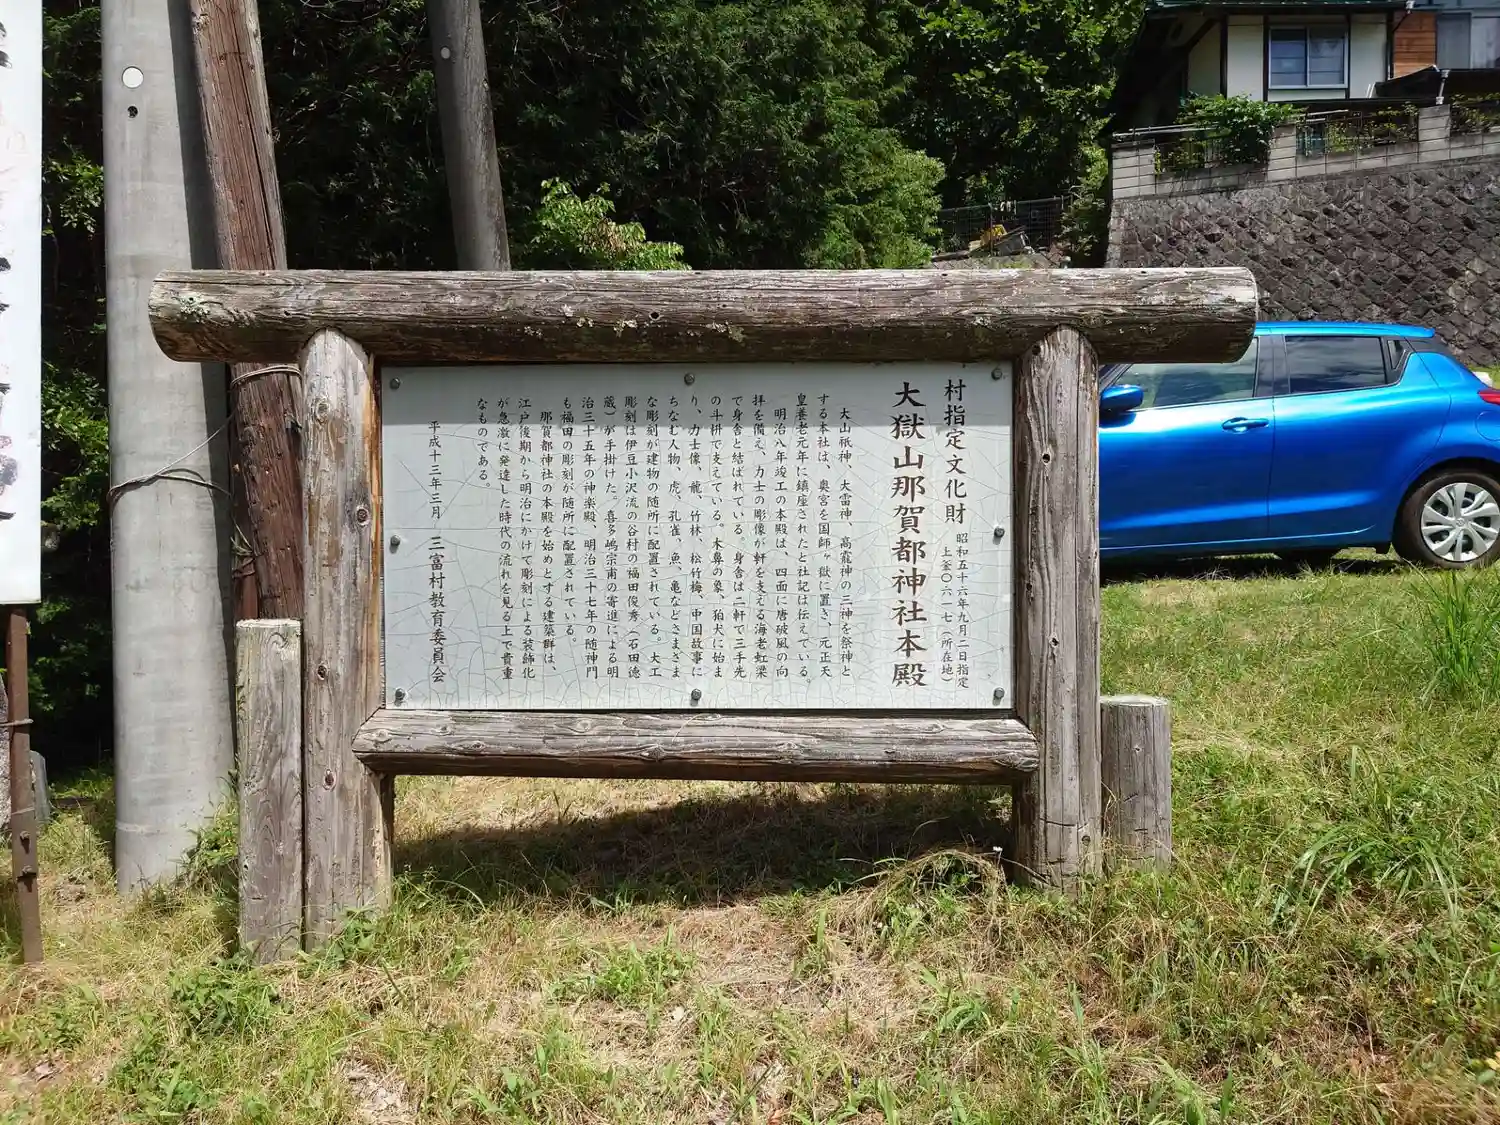 村指定文化財
昭和五十六年九月二日指定
上釜〇六一七（所在地）
大獄山那賀都神社本殿
大山祇神、大雷神、高龗神の三神を祭神と
する本社は、奥宮を国師ヶ獄に置き、元正天
皇養老元年に鎮座されたと社記は伝えている。
明治八年竣工の本殿は、四面に唐破風の向
拝を備え、力士の彫像が軒を支える海老虹梁
で身舎と結ばれている。身舎は二軒で三手先
の斗栱で支えている。木鼻の象、狛犬に始ま
り、力士像、龍、竹林、松竹梅、中国故事に
ちなむ人物、虎、孔雀、魚、亀などさまざま
な彫刻が建物の随所に配置されている。大工
彫刻は伊豆小沢流の谷村の福田俊秀（石田徳
蔵）が手掛けた。喜多嶋宗甫の寄進による明
治三十五年の神楽殿、明治三十七年の随神門
も福田の彫刻が随所に配置されている。
那賀都神社の本殿を始めとする建築群は、
江戸後期から明治にかけて彫刻による装飾化
が急激に発達した時代の流れを見る上で貴重
なものである。
平成十三年三月　三富村教育委員会